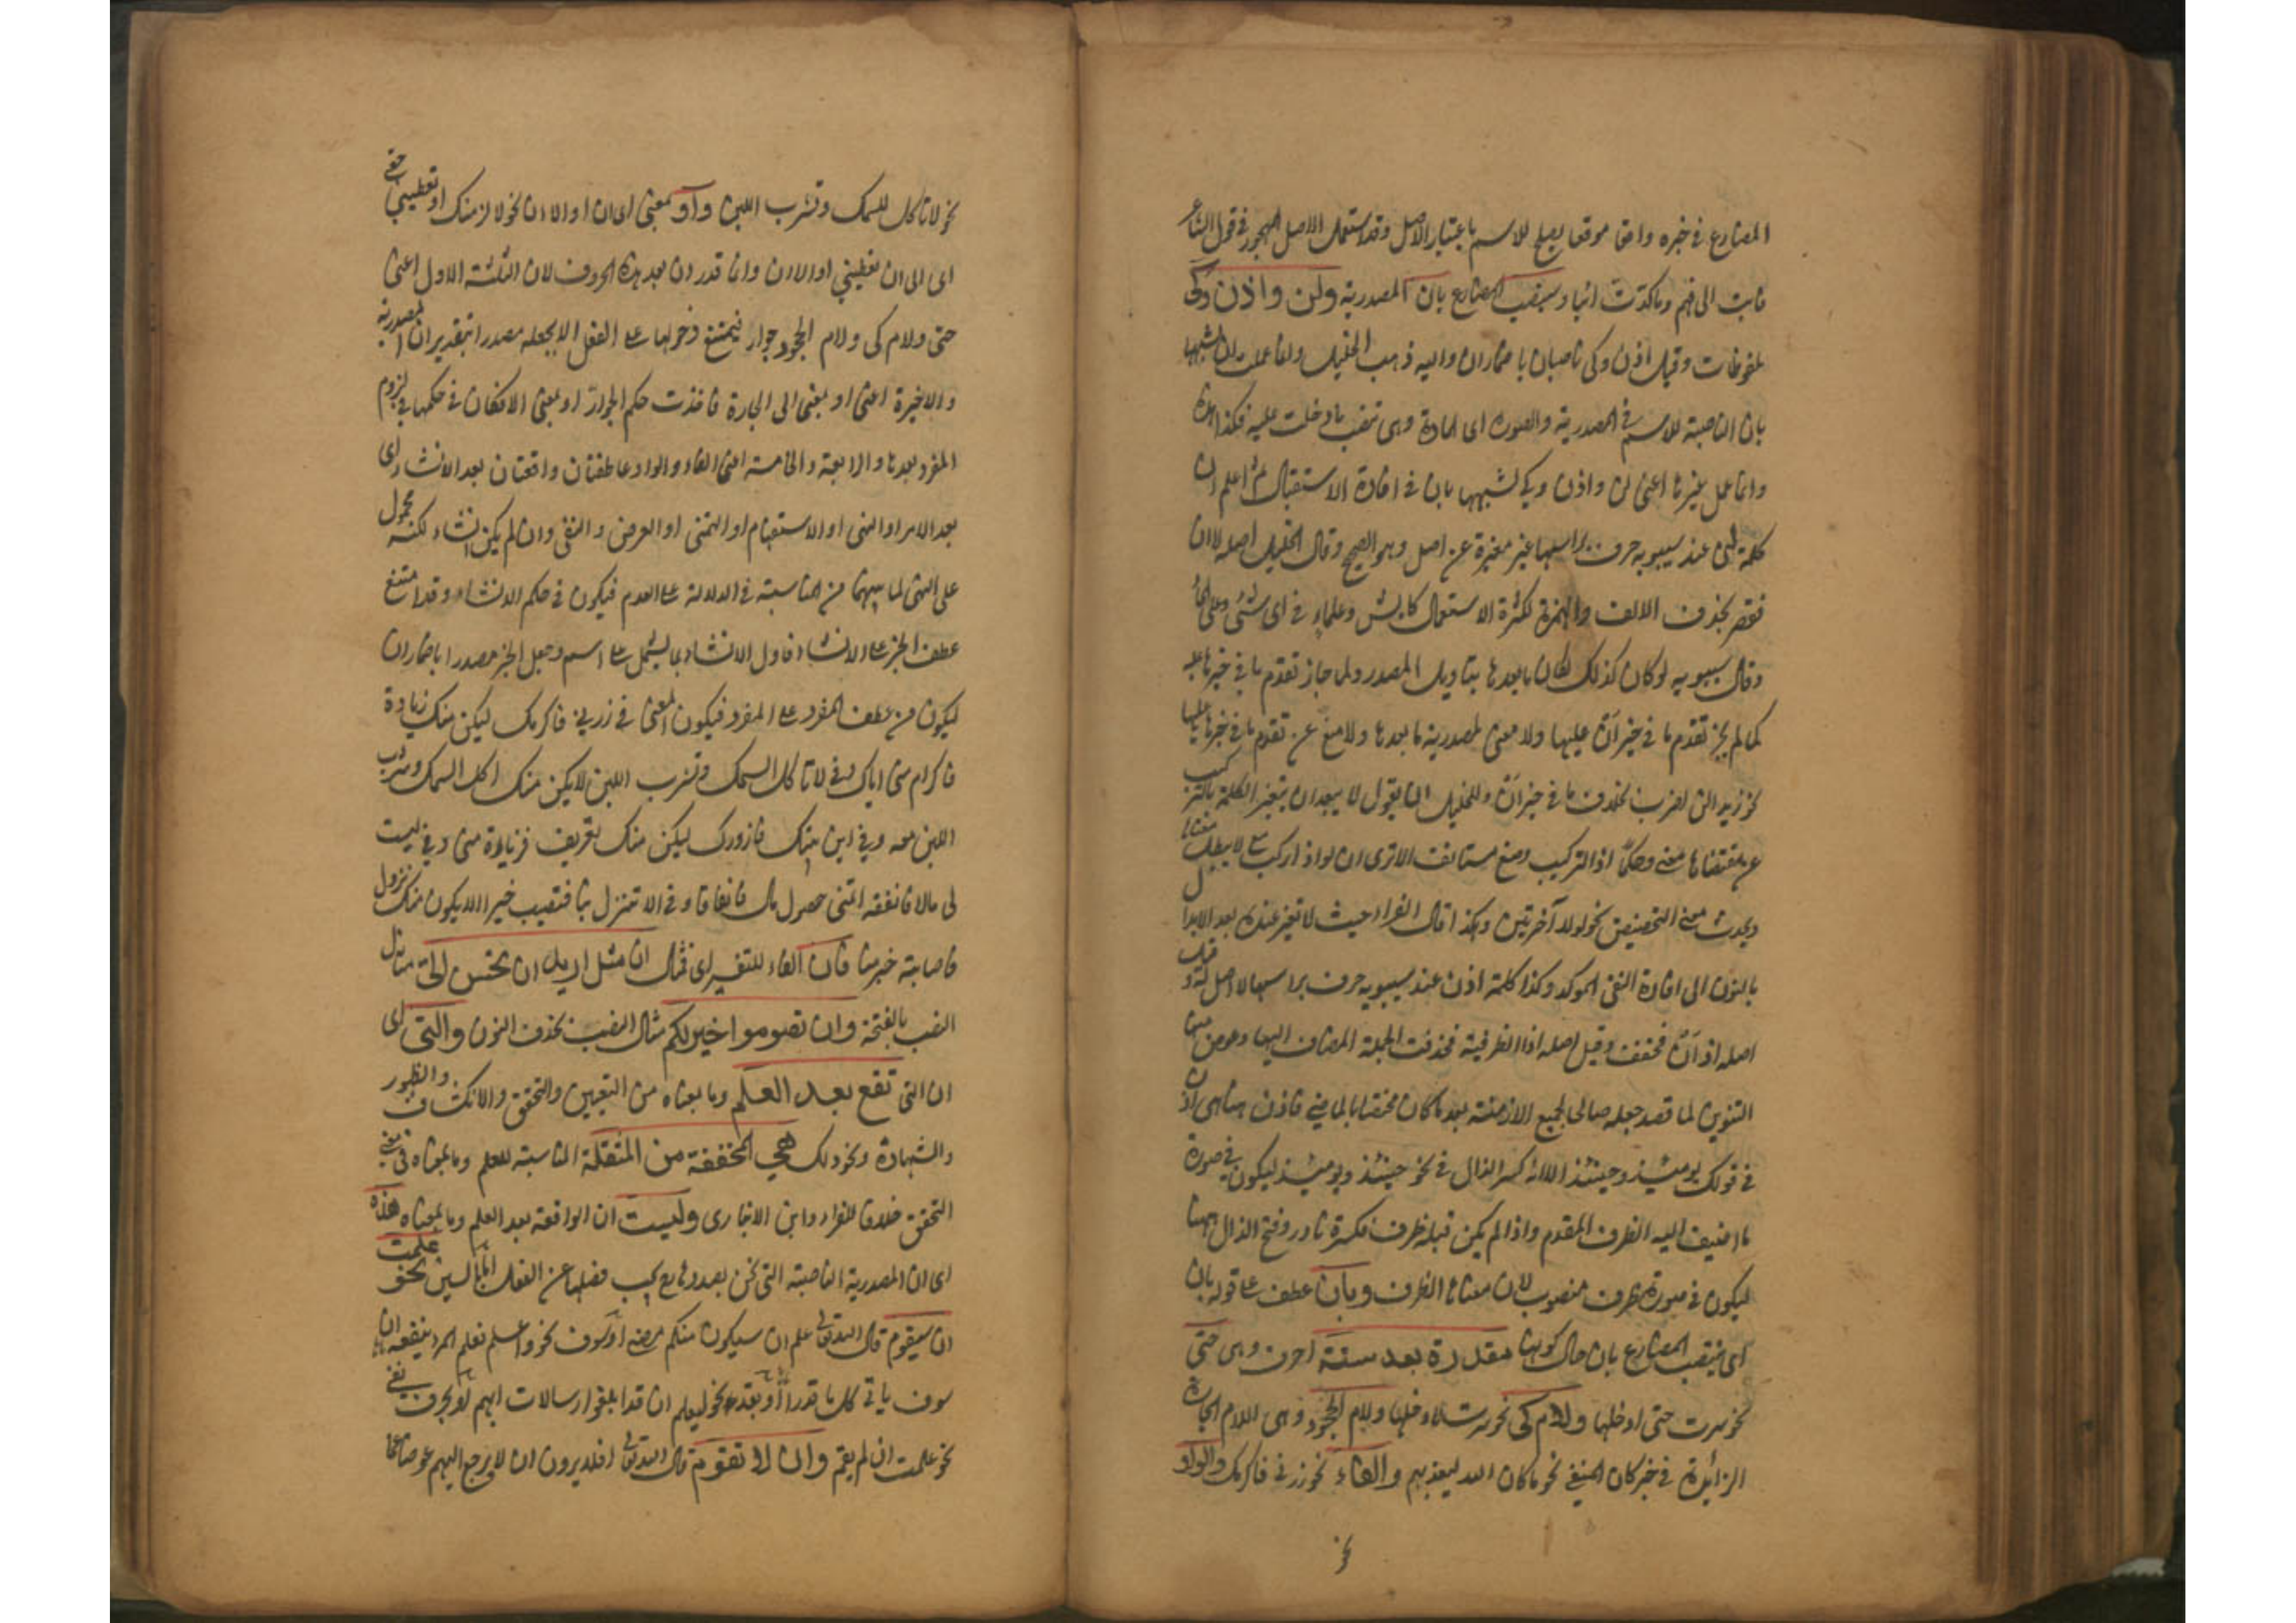 المضارع في خبره واقعا موقعا يصلح للاسم باعتبار الاصل وقد استعمل الاصل المهجور في قول الشاعر
فابت الى فهم وما كدت ائبا وينتصب المضارع بان المصدرية ولن واذن وكي
ملفوظات وقيل اذن وكي ناصبان باضماران واليه ذهب الخليل وانما عملت ان لشبهها
بان الناصبة للاسم في المصدرية والصورة اى المادة وهى تنصب ما دخلت عليه فكذا هذه
وانما عمل غيرها اعنى لن واذن وكى لشبهها بان في افادة الاستقبال ثم اعلم ان
كلمة لن عند سيبويه حرف براسها غير مغيرة عن اصل وهو الصحيح وقال الخليل اصله لا ان
فقصر بحذف الالف والهمزة لكثرة الاستعمال كايش وعلماء في اى شئ وعلى الماء
وقال سيبويه لو كان كذلك لكان ما بعدها بتاويل المصدر ولما جاز تقدم ما في خبرها عليه
كما لم يجز تقدم ما في خبر ان عليها ولا معنى لمصدرية ما بعدها ولا منع عن تقدم ما في خبرها عليها
نحو زيدا لن اضرب بخلاف ما في خبر ان وللخليل ان يقول لا يبعد ان يتغير الكلمة بالتركيب
عن مقتضاها معنى وحكما اذ التركيب وضع مستانف الا ترى ان لو اذا ركب مع لا يبطل معناها
ويحدث معنى التحضيض نحو لولا اخرتني وهكذا قال الفراء حيث لا تغير عنده بعد الابدال
بالنون الى افادة النفي الموكد وكذا كلمة اذن عند سيبويه حرف براسها لا اصل له وقيل
اصله اذ ان فخففت وقيل اصله اذا الظرفية فحذفت الجملة المضاف اليها وعوض منها
التنوين لما قصد جعله صالحا لجميع الازمنة بعد ما كان مختصا بالماضي فاذن هنا هى اذ
في قولك يومئذ وحينئذ الا انه كسر الذال في نحو حينئذ ويومئذ ليكون في صورة
ما اضيف اليه الظرف المقدم واذا لم يكن قبله ظرف فكسره نادر وفتح الذال ههنا
ليكون في صورة ظرف منصوب لان معناها الظرف وبان عطف على قوله بان
اى ينتصب المضارع بان حال كونها مقدرة بعد ستة احرف وهى حتى
نحو سرت حتى ادخلها ولام كى نحو سرت لادخلها ولام الجحود وهى اللام الجارة
الزائدة في خبر كان المنفي نحو ما كان الله ليعذبهم والفاء نحو زرني فاكرمك والواو
نحو
نحو لا تاكل السمك وتشرب اللبن واو بمعنى الى ان او الا ان نحو لا لزمنك او تعطيني حقي
اى الى ان تعطيني او الا ان وانما قدر ان بعد هذه الحروف لان الثلثة الاول اعنى
حتى ولام كى ولام الجحود جوار فيمتنع دخولها على الفعل الا بجعله مصدرا بتقدير ان المصدرية
والاخيرة اعنى او بمعنى الى الجارة فاخذت حكم الجوار او بمعنى الا فكان في حكمها في لزوم
المفرد بعدها والرابعة والخامسة اعنى الفاء والواو عاطفتان واقعتان بعد الانشاء اى
بعد الامر او النهى او الاستفهام او التمنى او العرض والنفى وان لم يكن انشاء لكنه محمول
على النهى لما بينهما من المناسبة في الدلالة على العدم فيكون في حكم الانشاء وقد امتنع
عطف الخبر على الانشاء فاول الانشاء بما يشمل على اسم وجعل الخبر مصدرا باضماران
ليكون من عطف المفرد على المفرد فيكون المعنى في زرني فاكرمك ليكن منك زيادة
فاكرام منى اياك وفي لا تاكل السمك وتشرب اللبن لا يكن منك اكل السمك وشرب
اللبن معه وفي اين بيتك فازورك ليكن منك تعريف فزيارة منى وفي ليت
لى مالا فانفقه اتمنى حصول مال فانفاقا وفي الا تنزل بنا فتصيب خيرا الا يكون منك نزول
فاصابة خير منا فان الفاء للتفسير اى فمثال ان مثل اريد ان تحسن الى مثال
النصب بالفتحة وان تصوموا خير لكم مثال النصب بحذف النون والتى اى
ان التى تقع بعد العلم وما بمعناه من التعيين والتحقق والانكشاف والظهور
والشهادة ونحو ذلك هي المخففة من المثقلة المناسبة للعلم وما بمعناه في معنى
التحقق خلافا للفراء وابن الانبارى وليست ان الواقعة بعد العلم وما بمعناه هذه
اى ان المصدرية الناصبة التى نحن بصددها و يجب فصلها عن الفعل اما بالسين نحو علمت
ان سيقوم قال الله تعالى علم ان سيكون منكم مرضى او سوف نحو واعلم فعلم المرء ينفعه ان
سوف ياتى كل ما قدرا او بقد نحو ليعلم ان قد ابلغوا رسالات ربهم او بحرف نفي
نحو علمت ان لم يقم وان لا تقوم قال الله تعالى افلا يرون ان لا يرجع اليهم عوضا عما